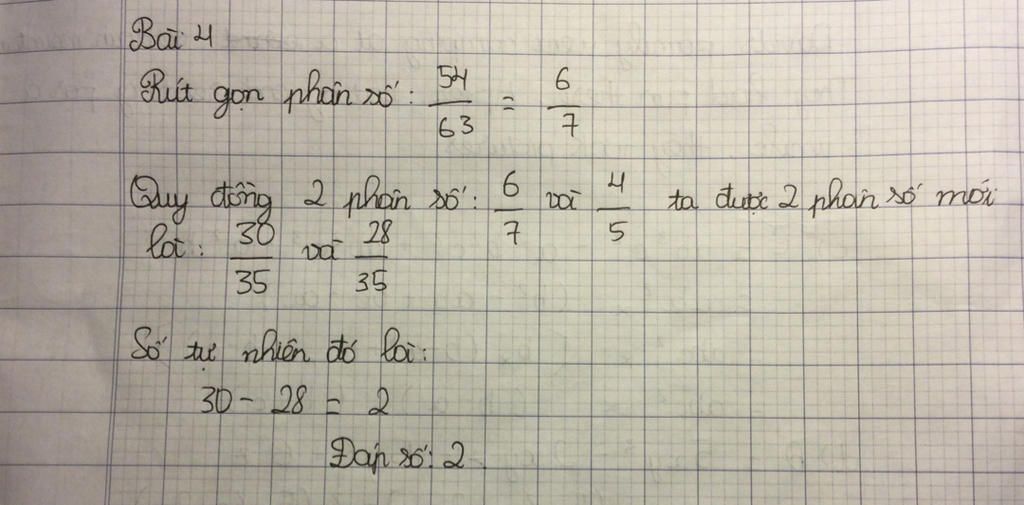 Bài 4
Rút gọn phân số: 54/63 = 6/7
Quy đồng 2 phân số: 6/7 và 4/5 ta được 2 phân số mới
là: 30/35 và 28/35
Số tự nhiên đó là:
30 - 28 = 2
Đáp số: 2